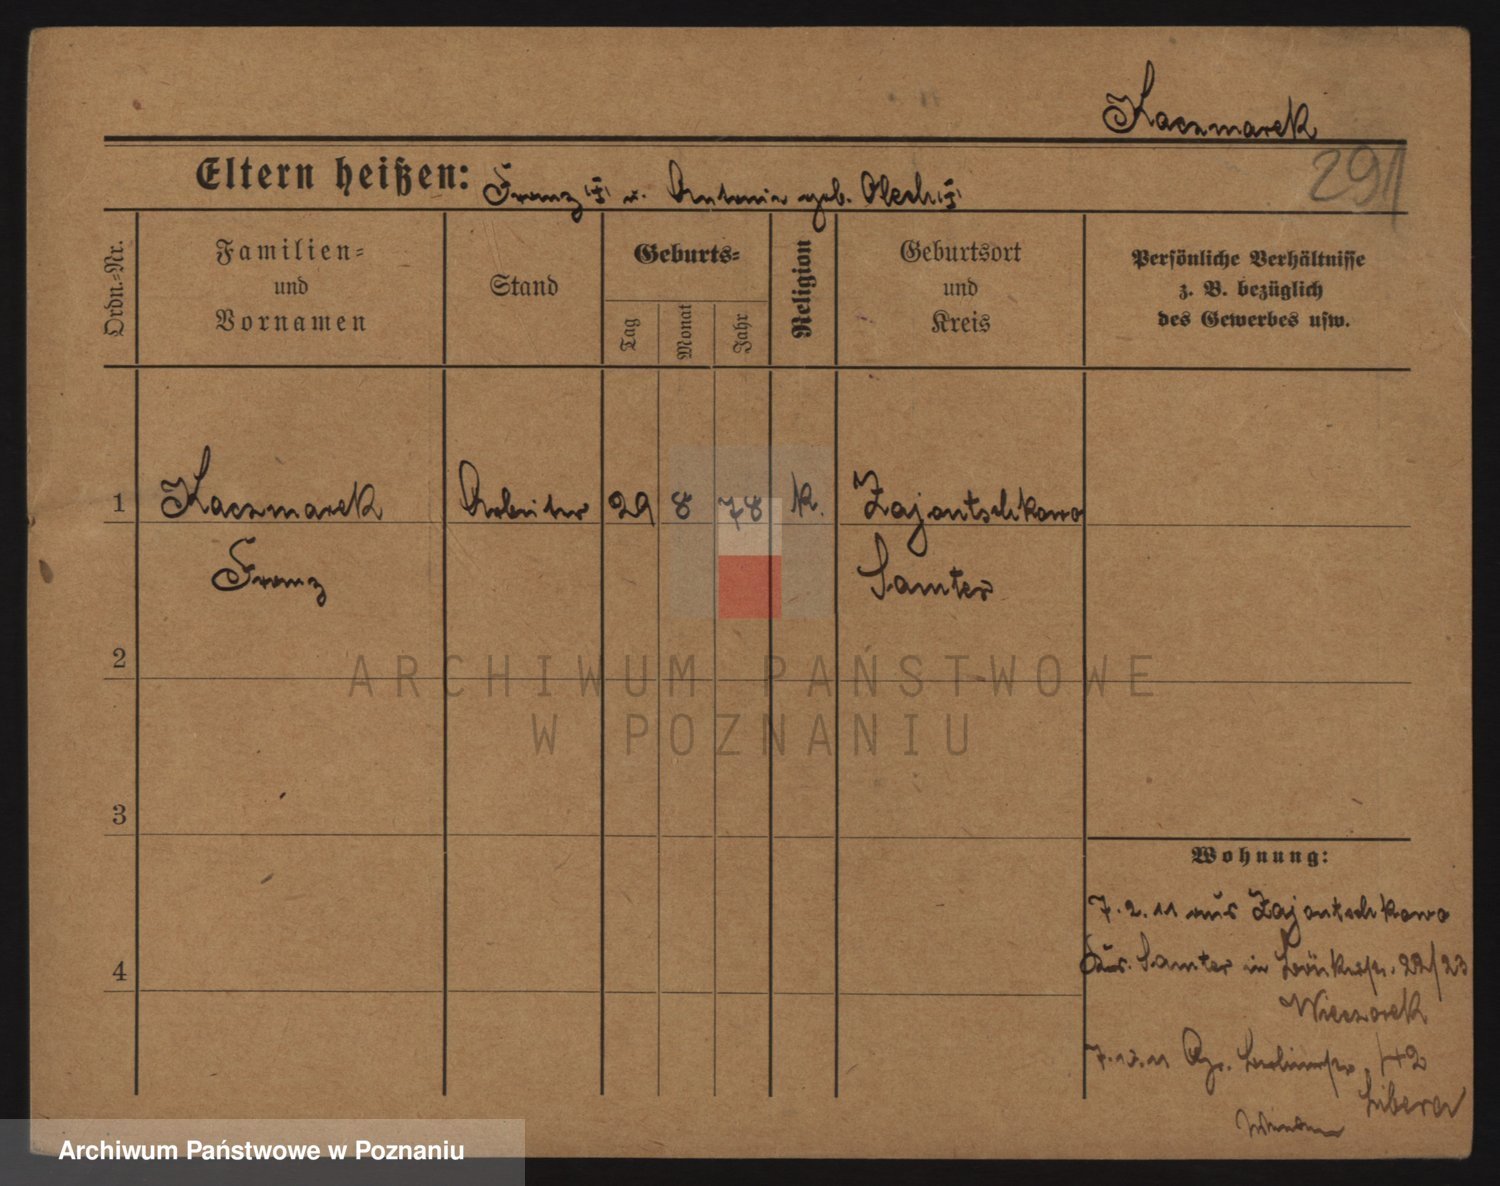 Kaczmarek
291
Eltern heißen: Franz (†) u. Antonie geb. Olech (†)
Ordn.-Nr.
Familien-
und
Vornamen
Stand
Geburts-
Tag
Monat
Jahr
Religion
Geburtsort
und
Kreis
Persönliche Verhältnisse
z. B. bezüglich
des Gewerbes usw.
1 Kaczmarek Arbeiter 29 8 78 k. Zajontschkowo
Franz Samter
2
ARCHIWUM PAŃSTWOWE
W POZNANIU
3
Wohnung:
7.2.11 aus Zajontschkowo
4
Samter in 22/23
Wieczorek
7.12.11 42
Libera
Archiwum Państwowe w Poznaniu